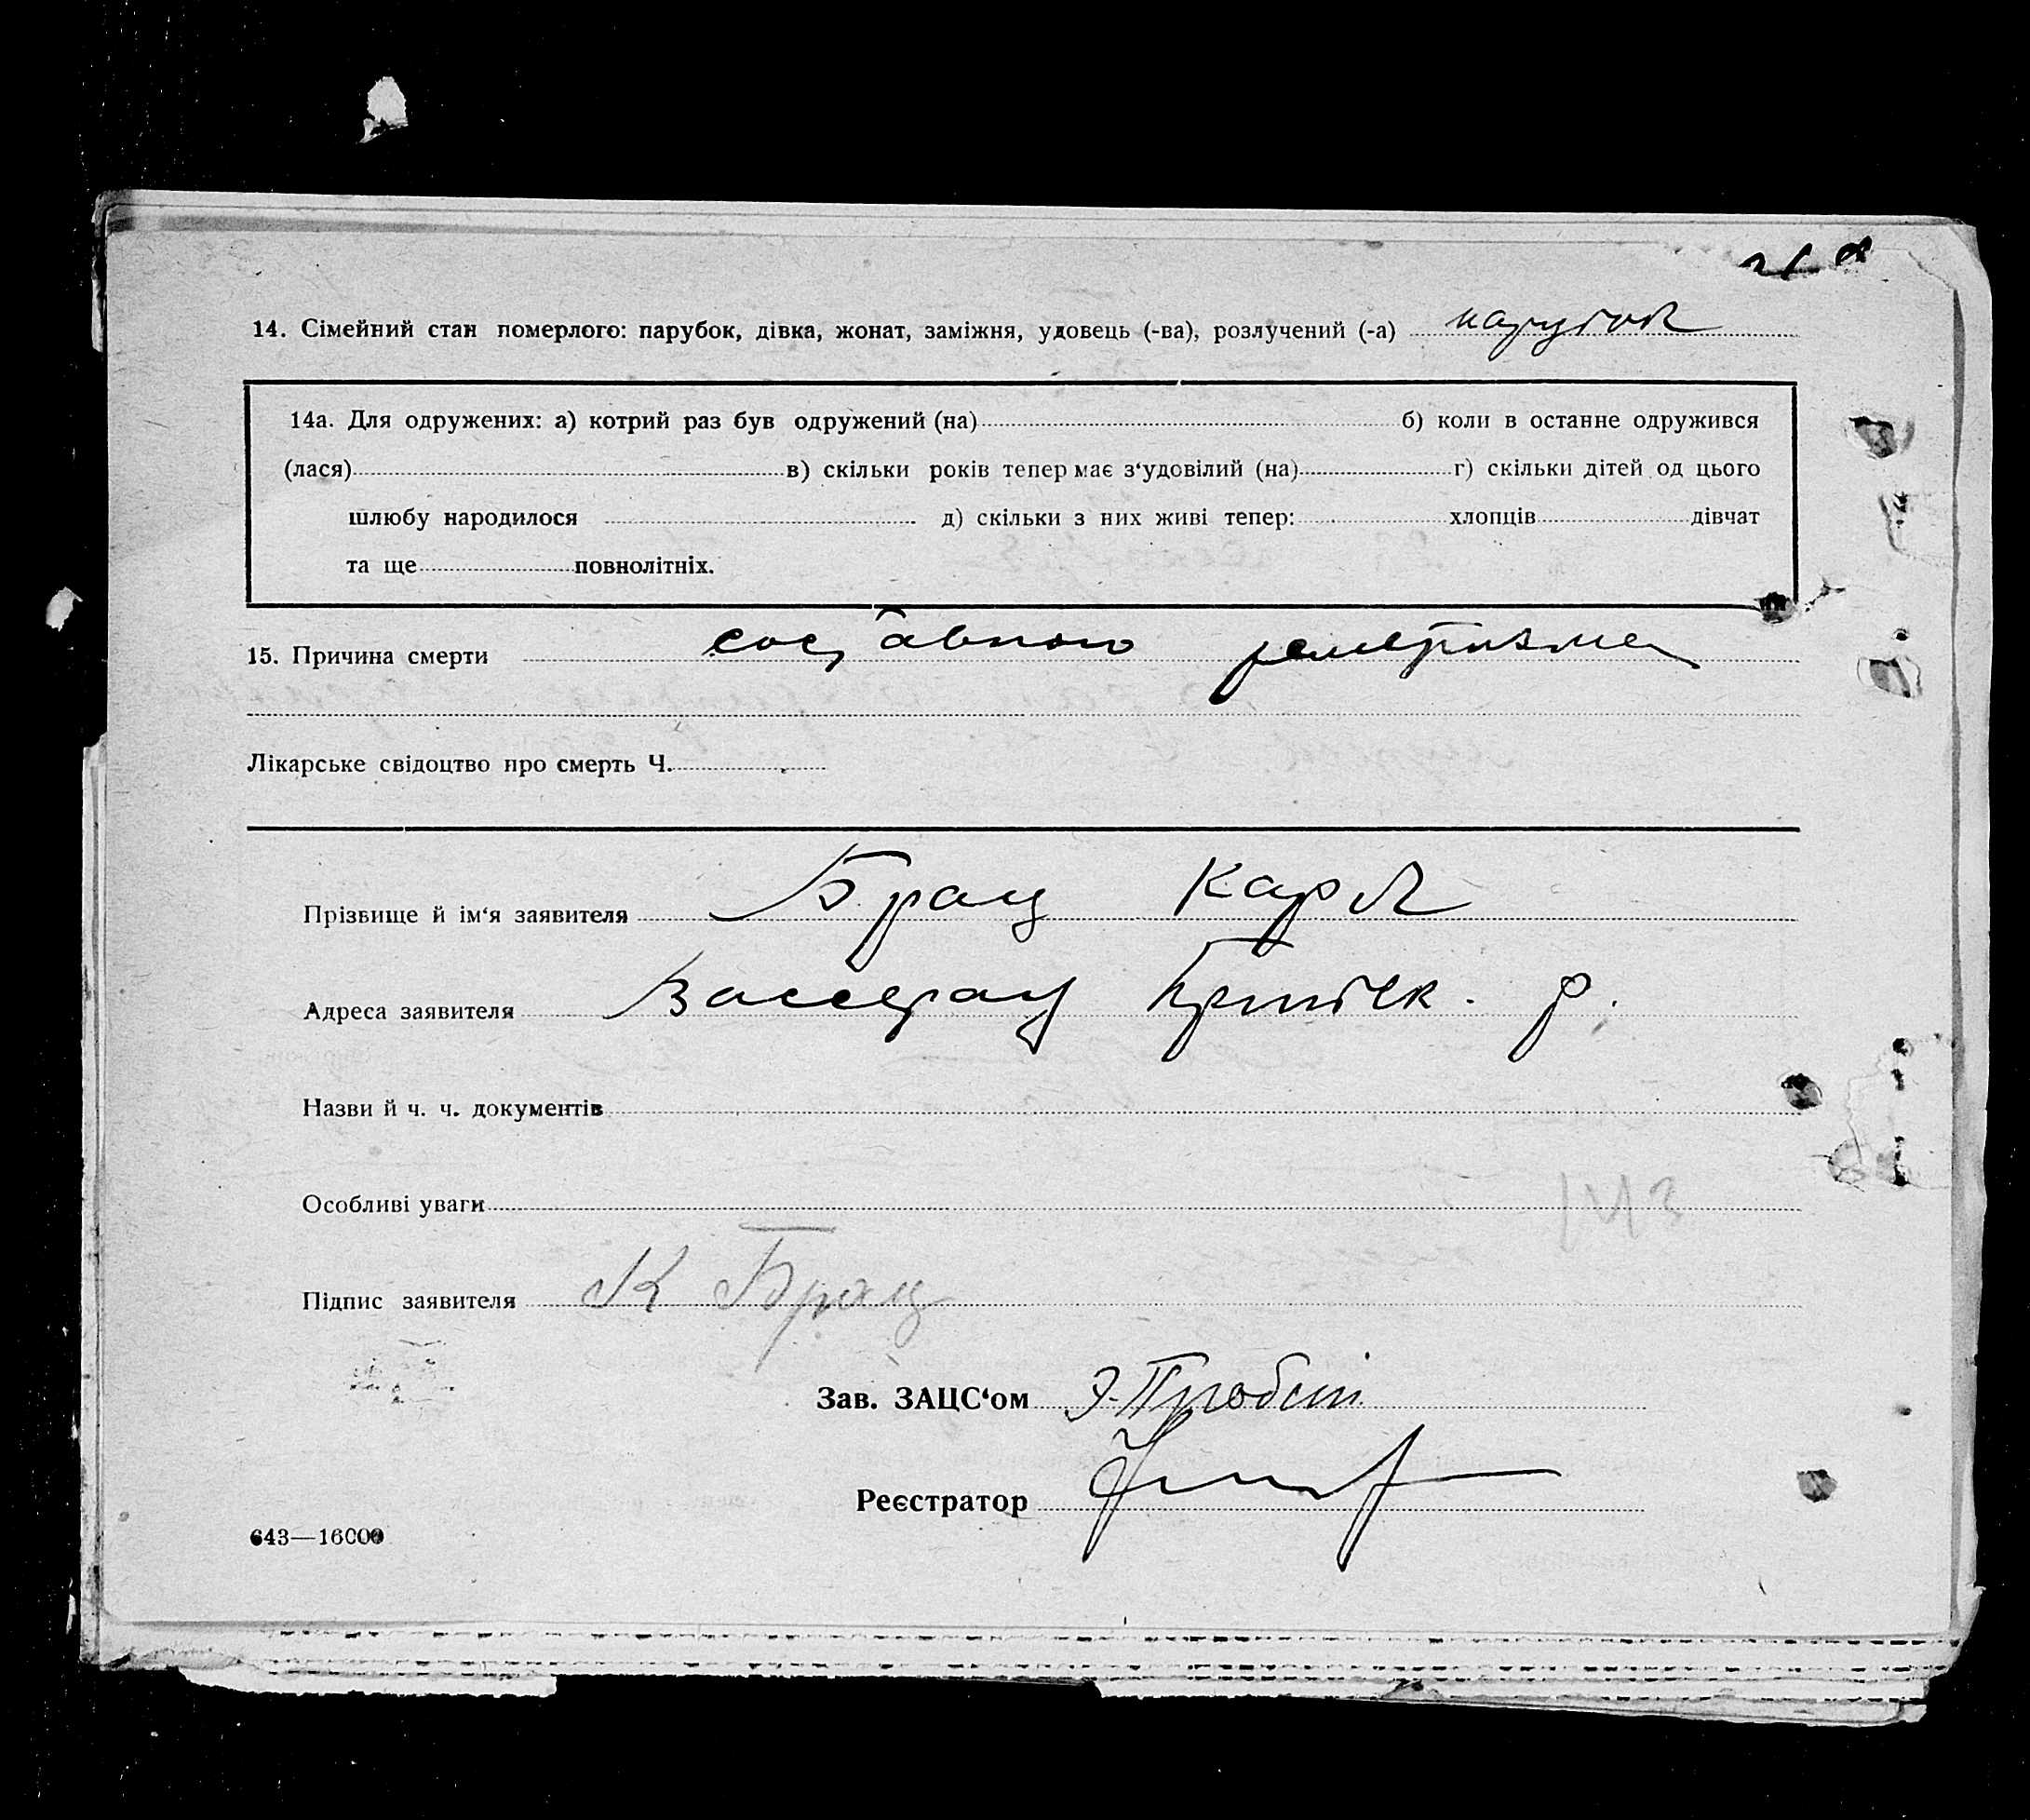 14. Сімейний стан померлого: парубок, дівка, жонат, заміжня, удовець (-ва), розлучений (-а) парубок
14а. Для одружених: а) котрий раз був одружений (на) б) коли в останнє одружився
(лася) в) скільки років тепер має з‘удовілий (на) г) скільки дітей од цього
шлюбу народилося д) скільки з них живі тепер: хлопців дівчат
та ще повнолітніх.
15. Причина смерти суставного ревматизма
Лікарське свідоцтво про смерть Ч.
Прізвище й ім‘я заявителя Брац Карл
Адреса заявителя Вассерау р.
Назви й ч. ч. документів
Особливі уваги 143
Підпис заявителя К Брац
Зав. ЗАЦС‘ом Э. Пробст
Реєстратор
643—16000